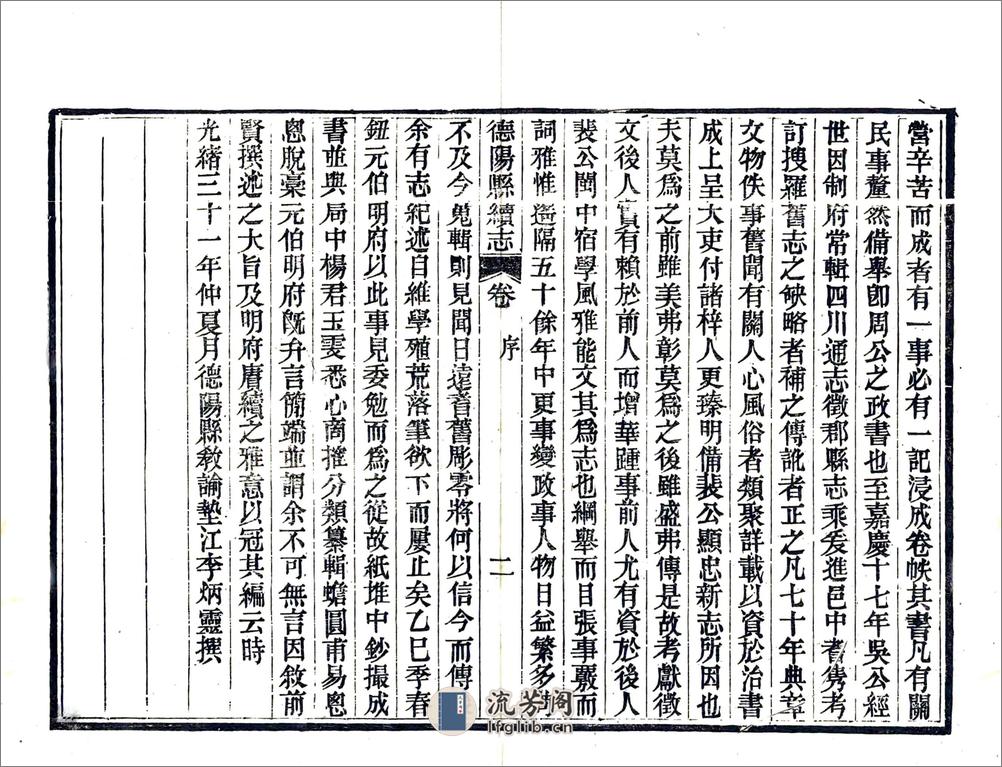 嘗辛苦而成者有一事必有一記浸成卷帙其書凡有關
民事釐然備舉卽周公之政書也至嘉慶十七年吳公經
世因制府常輯四川通志徵郡縣志乘爰進邑中耆雋考
訂搜羅舊志之缺略者補之傳訛者正之凡七十年典章
文物佚事舊聞有關人心風俗者類聚詳載以資於治書
成上呈大吏付諸梓人更臻明備裴公顯忠新志所因也
夫莫爲之前雖美弗彰莫爲之後雖盛弗傳是故考獻徵
文後人實有賴於前人而增華踵事前人尤有資於後人
裴公閩中宿學風雅能文其爲志也綱舉而目張事覈而
詞雅惟遙隔五十餘年中更事變政事人物日益繁多
德陽縣續志 卷 序 二
不及今蒐輯則見聞日遠耆舊彫零將何以信今而傳
余有志紀述自維學殖荒落筆欲下而屢止矣乙巳季春
鈕元伯明府以此事見委勉而爲之從故紙堆中鈔撮成
書並與局中楊君玉雯悉心商搉分類纂輯蟾圓甫易悤
悤脫稾元伯明府旣弁言簡端並謂余不可無言因敘前
賢撰述之大旨及明府賡續之雅意以冠其編云時
光緒三十一年仲夏月德陽縣敎諭墊江李炳靈撰
流芳阁
lfglib.cn